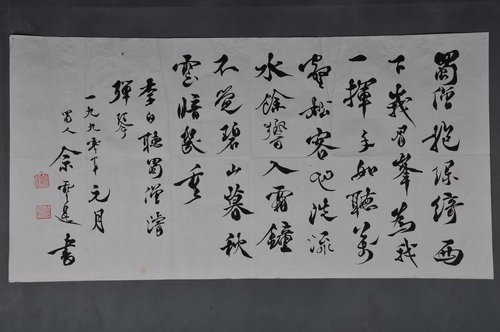 蜀僧抱綠綺西
下峨眉峯為我
一揮手如聽萬
壑松客心洗流
水餘響入霜鐘
不覺碧山暮秋
雲暗幾重
李白聽蜀僧濬
彈琴
一九九零年元月
蜀人余書